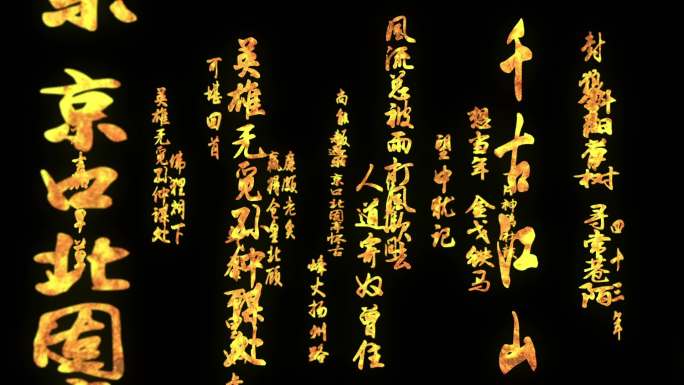 四十三年
斜阳草树
尋常巷陌
千古江山
想当年
金戈铁马
望中犹记
風流总被雨打風吹去
人道寄奴曾住
京口北固亭怀古
烽火扬州路
廉颇老矣
赢得仓皇北顾
英雄无觅孙仲谋处
可堪回首
佛狸祠下
英雄无觅孙仲谋处
京口北固